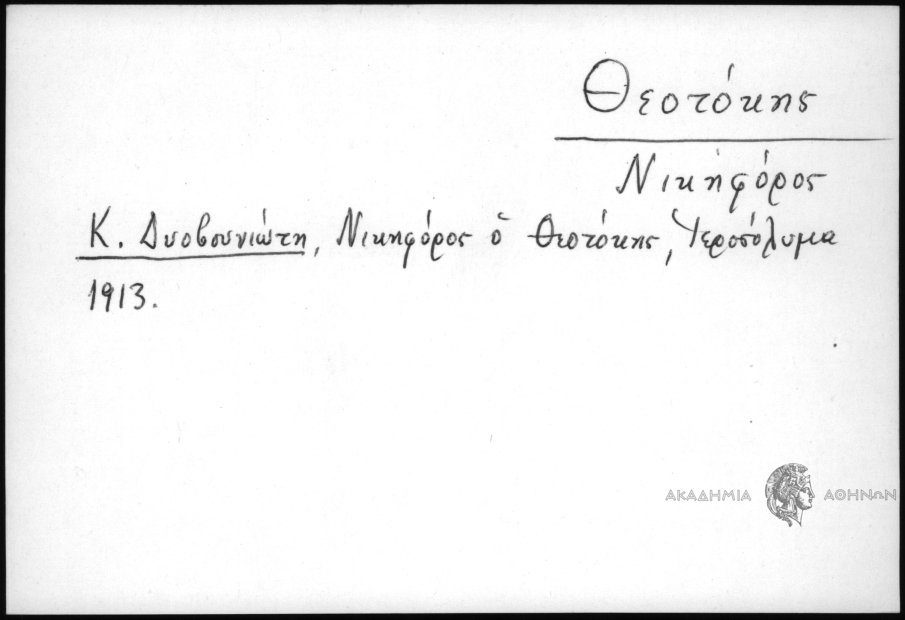 Θεοτόκης
Νικηφόρος
Κ. Δυοβουνιώτη, Νικηφόρος ὁ Θεοτόκης, Ἱεροσόλυμα
1913.
ΑΚΑΔΗΜΙΑ ΑΘΗΝΩΝ